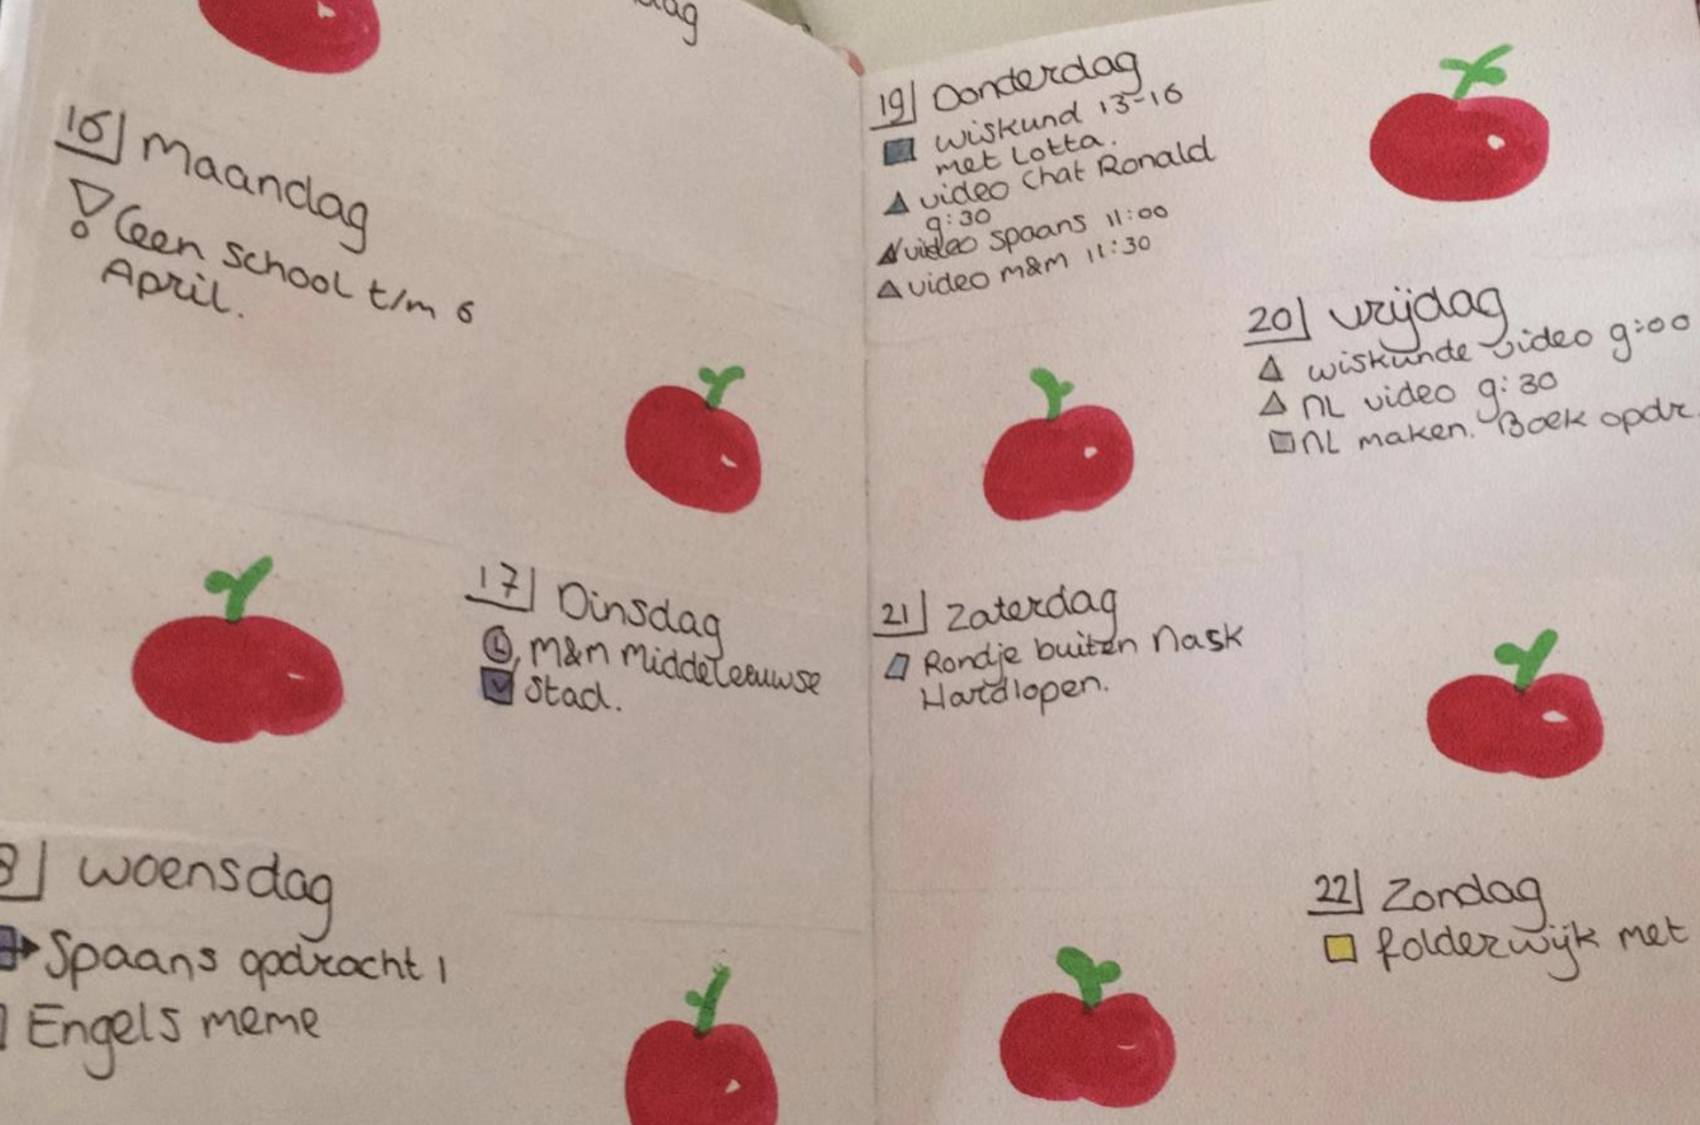 16 Maandag
Geen school t/m 6
April.
17 Dinsdag
M&M Middeleeuwse
Stad.
woensdag
Spaans opdracht 1
Engels meme
19 Donderdag
wiskund 13-16
met Lotta.
video chat Ronald
9:30
video spaans 11:00
video m&m 11:30
20 vrijdag
wiskunde video 9:00
NL video 9:30
NL maken. Boek opdr.
21 Zaterdag
Rondje buiten Nask
Hardlopen.
22 Zondag
folderwijk met